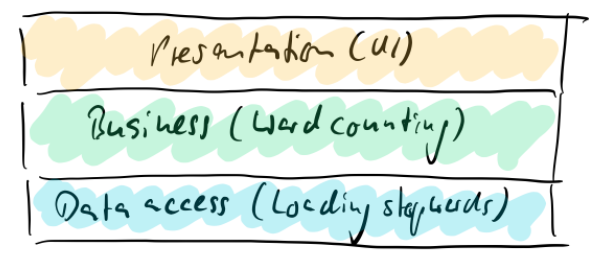 Presentation (UI)
Business (Word counting)
Data access (Loading stopwords)